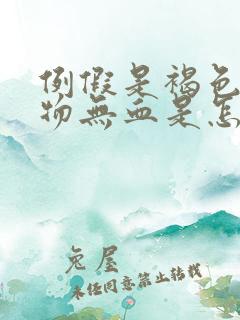 例假是褐色
物無血是怎
兔屋
未经同意禁止转载